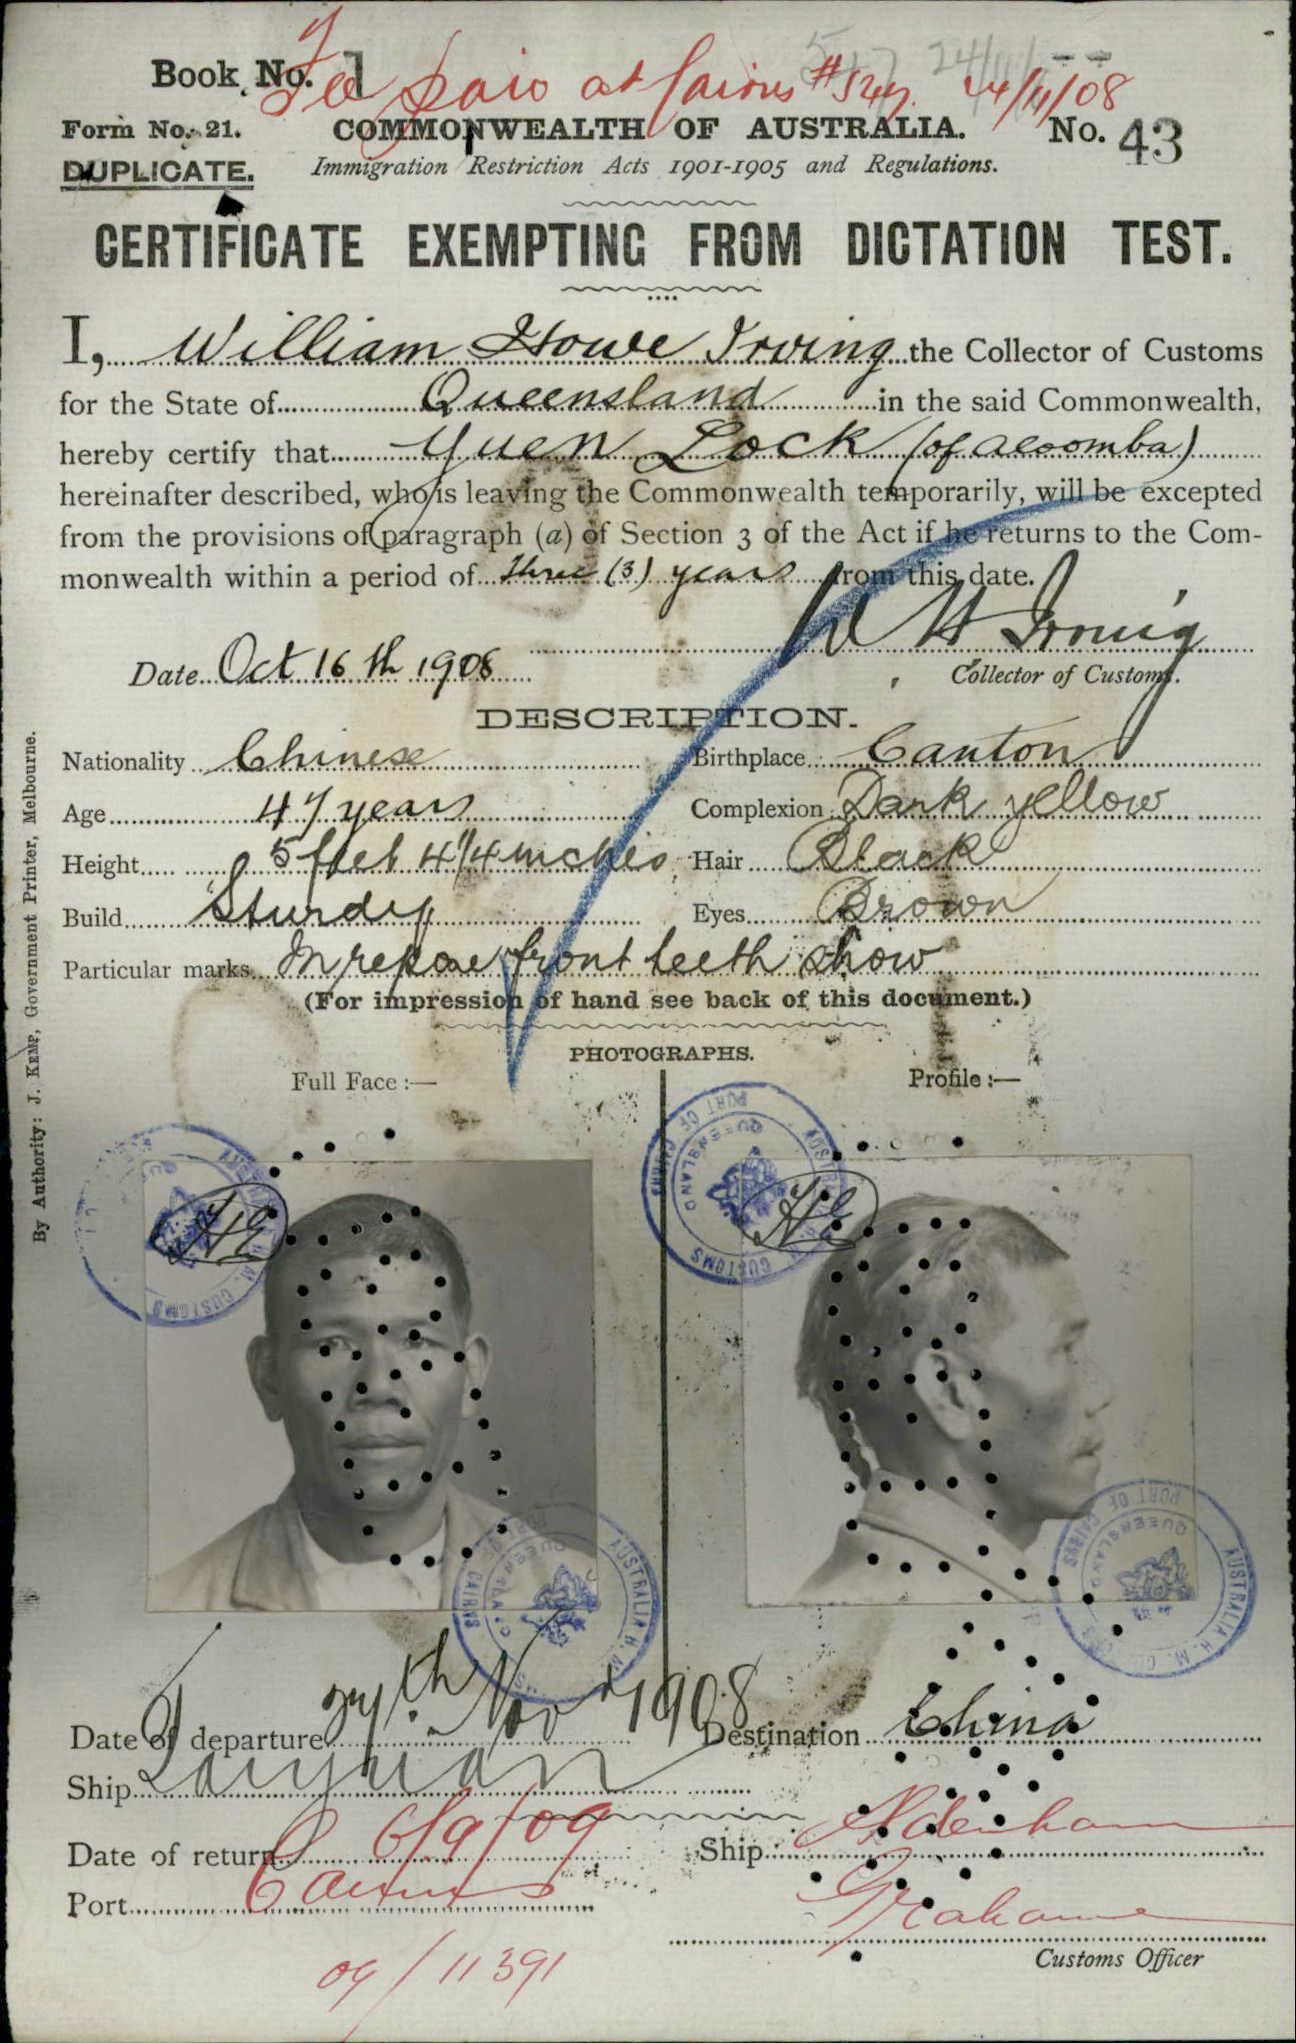 Fee paid at Cairns #527. 24/11/08
Book No. 1
Form No. 21. COMMONWEALTH OF AUSTRALIA. No. 43
DUPLICATE. Immigration Restriction Acts 1901-1905 and Regulations.
CERTIFICATE EXEMPTING FROM DICTATION TEST.
I, William Howe Irving the Collector of Customs
for the State of Queensland in the said Commonwealth,
hereby certify that Yuen Lock (of Aloomba)
hereinafter described, who is leaving the Commonwealth temporarily, will be excepted
from the provisions of paragraph (a) of Section 3 of the Act if he returns to the Com-
monwealth within a period of three (3) years from this date.
W H Irving
Date Oct 16th 1908 Collector of Customs.
DESCRIPTION.
Nationality Chinese Birthplace Canton
Age 47 years Complexion Dark yellow
Height 5 feet 4 1/4 inches Hair Black
Build Sturdy Eyes Brown
Particular marks In repose front teeth show
(For impression of hand see back of this document.)
PHOTOGRAPHS.
Full Face :— Profile :—
HE HE
AUSTRALIA H. M. CUSTOMS PORT OF CAIRNS QUEENSLAND
Date of departure 24th Nov 1908 Destination China
Ship Taiyuan
Date of return 6/9/09 Ship Aldenham
Port Cairns Grahame
Customs Officer
09/11391
By Authority: J. KEMP, Government Printer, Melbourne.